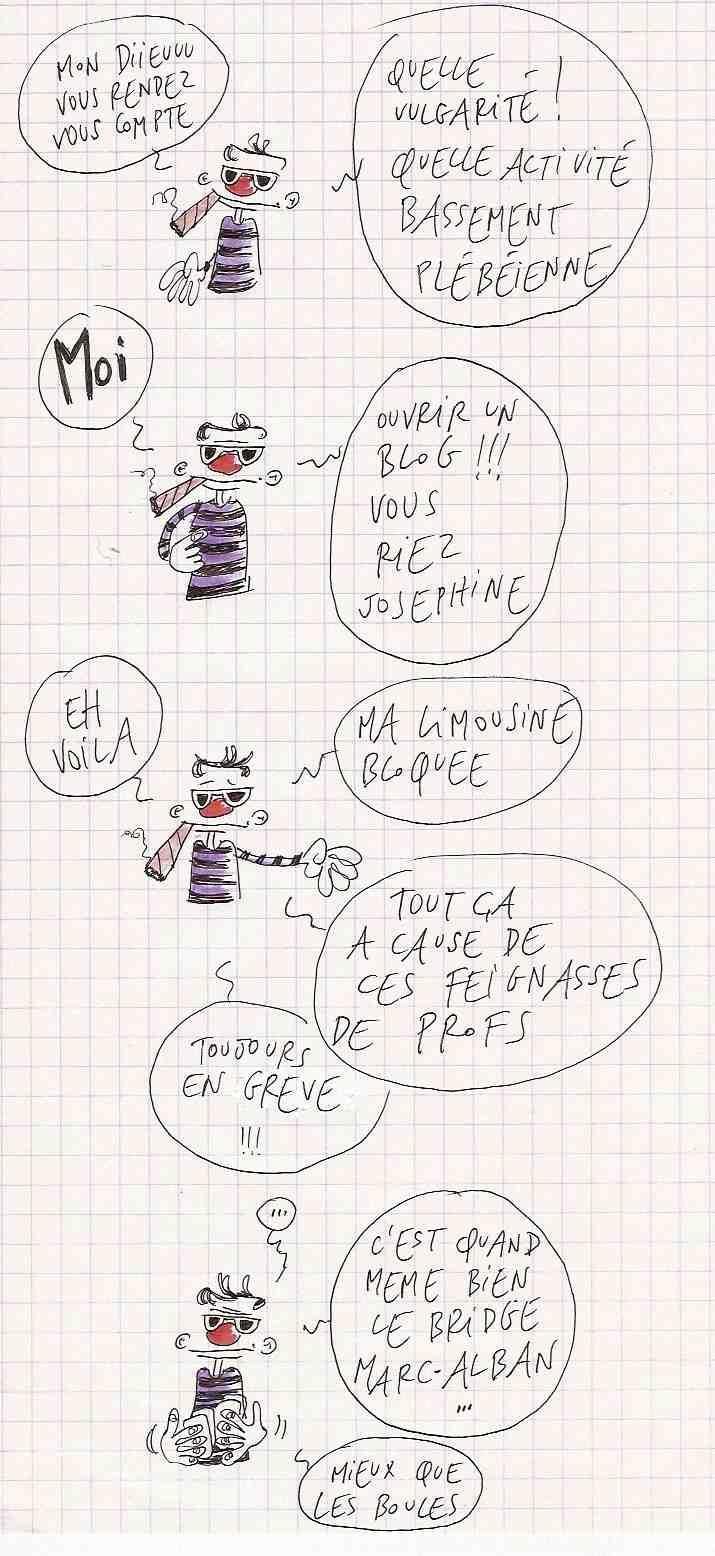 MON DIIEUUU
VOUS RENDEZ
VOUS COMPTE
QUELLE
VULGARITÉ !
QUELLE ACTIVITÉ
BASSEMENT
PLÉBÉIENNE
Moi
OUVRIR UN
BLOG !!!
VOUS
RIEZ
JOSEPHINE
EH
VOILA
MA LIMOUSINE
BLOQUEE
TOUT ÇA
A CAUSE DE
CES FEIGNASSES
DE PROFS
TOUJOURS
EN GREVE
!!!
...
C'EST QUAND
MEME BIEN
LE BRIDGE
MARC-ALBAN
...
MIEUX QUE
LES BOULES